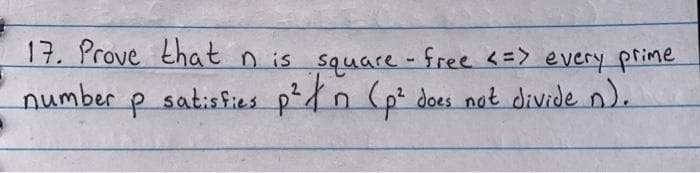 17. Prove that n is square-free <=> every prime
number p satisfies p² ∤ n (p² does not divide n).